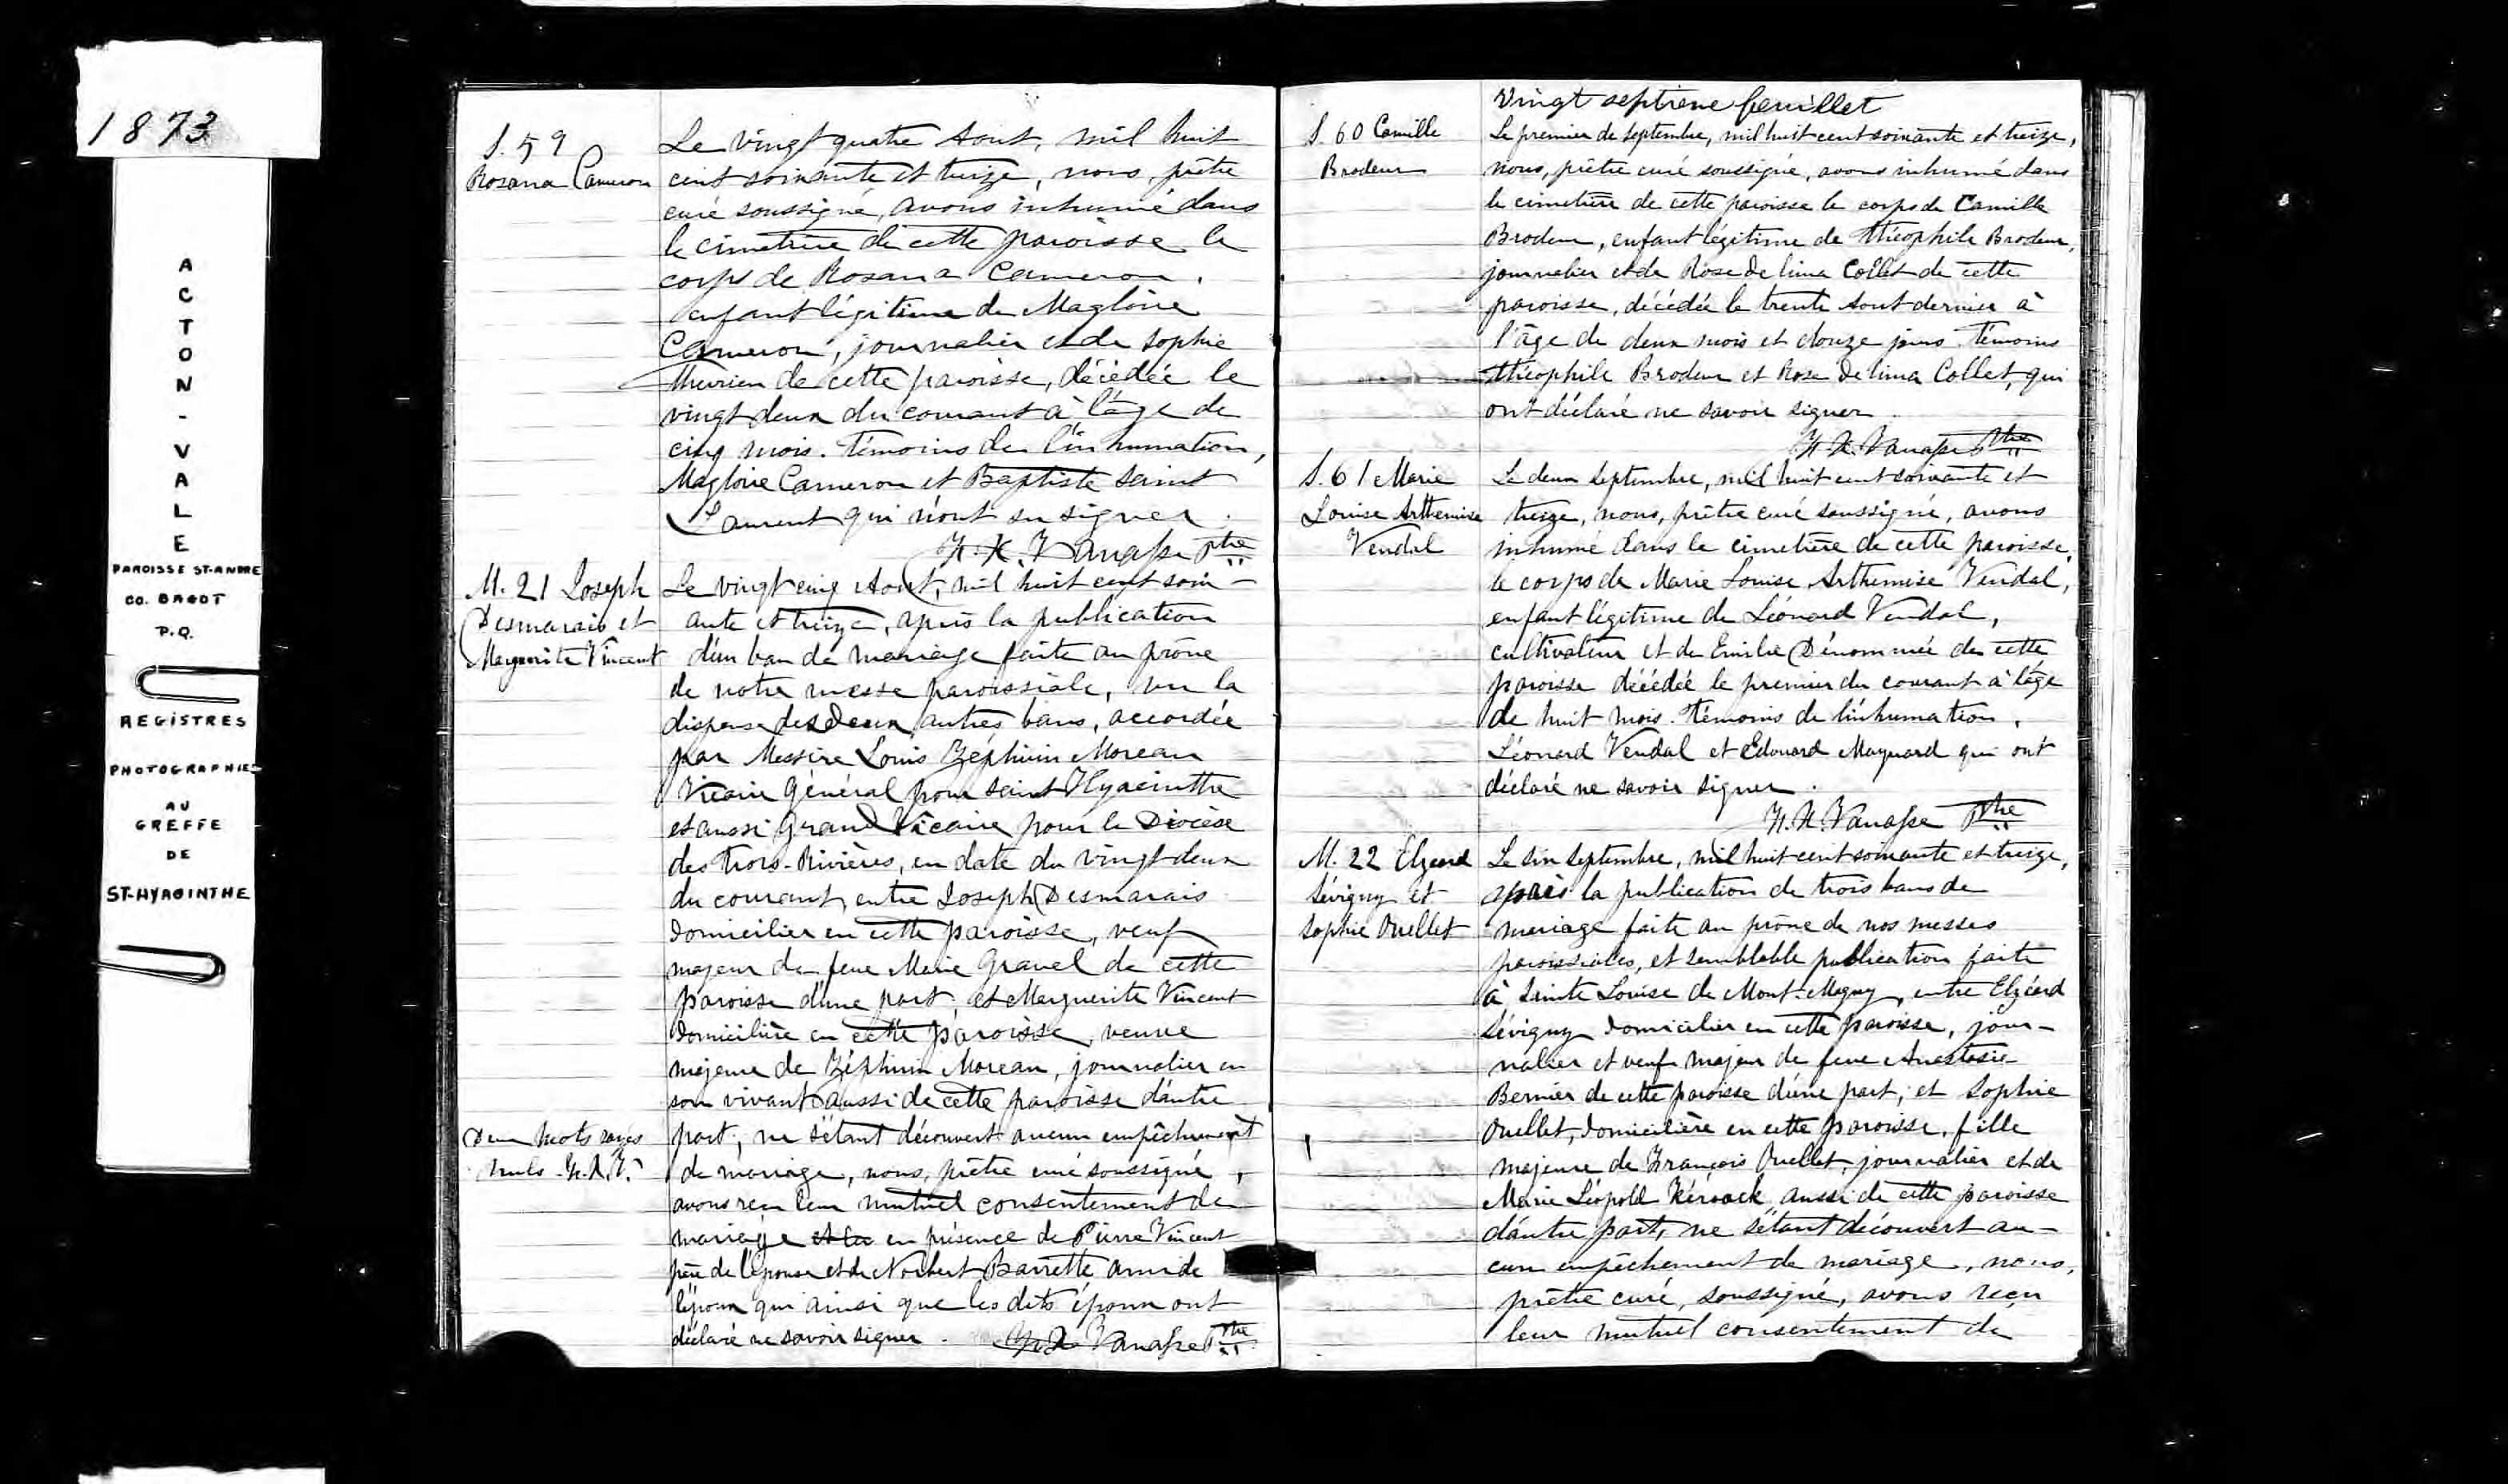 1873
ACTON-VALE
PAROISSE ST-ANDRE
CO. BAGOT
P.Q.
REGISTRES
PHOTOGRAPHIES
AU
GREFFE
DE
ST-HYACINTHE
S. 59
Rosana Cameron
Le vingt quatre Aout, mil huit
cent soixante et treize, nous, prêtre
curé soussigné, avons inhumé dans
le cimetière de cette paroisse le
corps de Rosana Cameron,
enfant légitime de Magloire
Cameron, journalier et de Sophie
Therrien de cette paroisse, décédée le
vingt deux du courant à l'âge de
cinq mois. Témoins de l'inhumation,
Magloire Cameron et Baptiste Saint
Laurent qui n'ont su signer.
Vanasse Ptre
M. 21 Joseph
Desmarais et
Marguerite Vincent
Le vingt cinq Aout, mil huit cent soix-
ante et treize, après la publication
d'un ban de mariage faite au prône
de notre messe paroissiale, vu la
dispense des deux autres bans, accordée
par Messire Louis Zéphirin Moreau
Vicaire Général pour Saint Hyacinthe
et aussi Grand Vicaire pour le Diocèse
des Trois-Rivières, en date du vingt deux
du courant, entre Joseph Desmarais
domicilier en cette paroisse, veuf
majeur de feue Marie Gravel de cette
paroisse d'une part, et Marguerite Vincent
domicilière en cette paroisse, veuve
majeure de Zéphirin Moreau, journalier en
son vivant aussi de cette paroisse d'autre
part; ne s'étant découvert aucun empêchement
de mariage, nous, prêtre curé soussigné,
avons reçu leur mutuel consentement de
mariage et la en présence de Pierre Vincent
père de l'épouse et de Norbert Barrette ami de
l'époux qui ainsi que les dits époux ont
déclaré ne savoir signer. Vanasse Ptre
Deux mots rayés
nuls
Vingt septième feuillet
S. 60 Camille
Brodeur
Le premier de Septembre, mil huit cent soixante et treize,
nous, prêtre curé soussigné, avons inhumé dans
le cimetière de cette paroisse le corps de Camille
Brodeur, enfant légitime de Théophile Brodeur,
journalier et de Rose de lima Collet de cette
paroisse, décédée le trente Aout dernier à
l'âge de deux mois et douze jours. Témoins
Théophile Brodeur et Rose de lima Collet, qui
ont déclaré ne savoir signer.
Vanasse Ptre
S. 61 Marie
Louise Arthemise
Vendal
Le deux Septembre, mil huit cent soixante et
treize, nous, prêtre curé soussigné, avons
inhumé dans le cimetière de cette paroisse,
le corps de Marie Louise Arthemise Vendal,
enfant légitime de Léonard Vendal,
cultivateur et de Emilie Dénommée de cette
paroisse décédée le premier du courant à l'âge
de huit mois. Témoins de l'inhumation,
Léonard Vendal et Edouard Maynard qui ont
déclaré ne savoir signer.
Vanasse Ptre
M. 22 Elzeard
Sévigny et
Sophie Ouellet
Le six Septembre, mil huit cent soixante et treize,
après la publication de trois bans de
mariage faite au prône de nos messes
paroissiales, et semblable publication faite
à Sainte Louise de Mont-Magny, entre Elzéard
Sévigny domicilier en cette paroisse, jour-
nalier et veuf majeur de feue Anastasie
Bernier de cette paroisse d'une part; et Sophie
Ouellet, domicilière en cette paroisse, fille
majeure de François Ouellet, journalier et de
Marie Léopold Kéroack aussi de cette paroisse
d'autre part, ne s'étant découvert au-
cun empêchement de mariage, nous,
prêtre curé, soussigné, avons reçu
leur mutuel consentement de